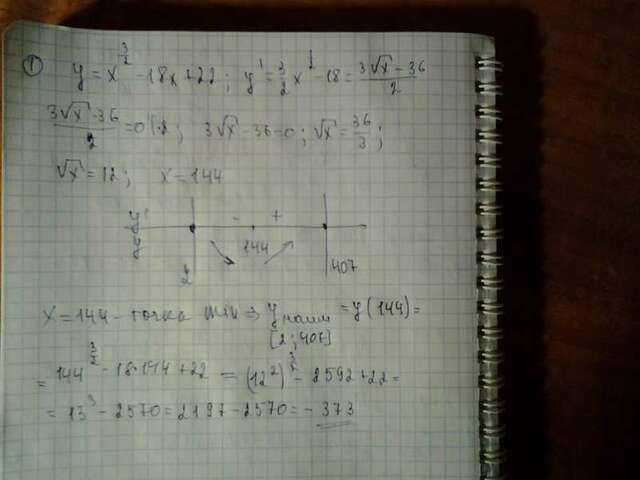 ① y = x^(3/2) - 18x + 22 ; y' = 3/2 x^(1/2) - 18 = (3√x - 36)/2
(3√x - 36)/2 = 0 |·2 ; 3√x - 36 = 0 ; √x = 36/3 ;
√x = 12 ; x = 144
y' - +
y 2 144 407
x = 144 - точка min ⇒ y наим = y(144) =
[2 ; 407]
= 144^(3/2) - 18·144 + 22 = (12²)^(3/2) - 2592 + 22 =
= 13³ - 2570 = 2197 - 2570 = - 373